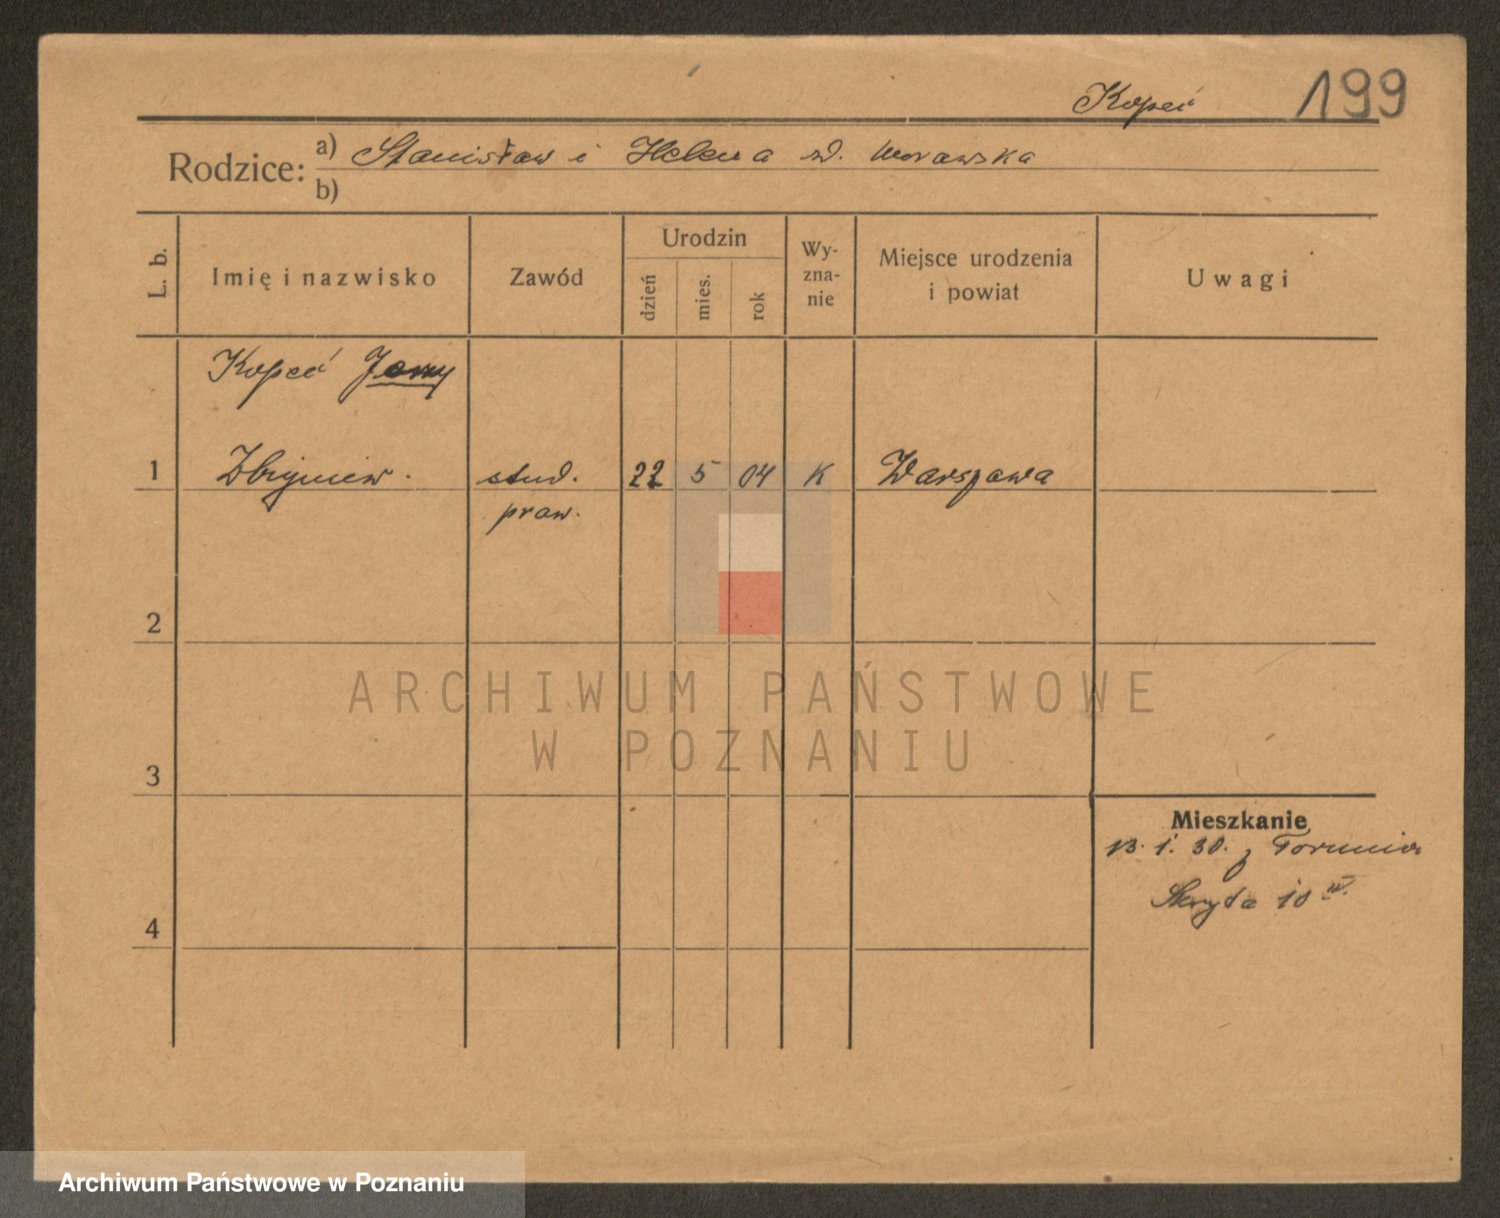 Kopeć 199
Rodzice: a) Stanisław i Helena zd. Morawska
b)
L. b. Imię i nazwisko Zawód Urodzin dzień mies. rok Wyznanie Miejsce urodzenia i powiat Uwagi
Kopeć Jerzy
1 Zbigniew. stud. 22 5 04 K Warszawa
praw.
2
ARCHIWUM PAŃSTWOWE
W POZNANIU
3
Mieszkanie
13. 1. 30. z Torunia
4 10
Archiwum Państwowe w Poznaniu